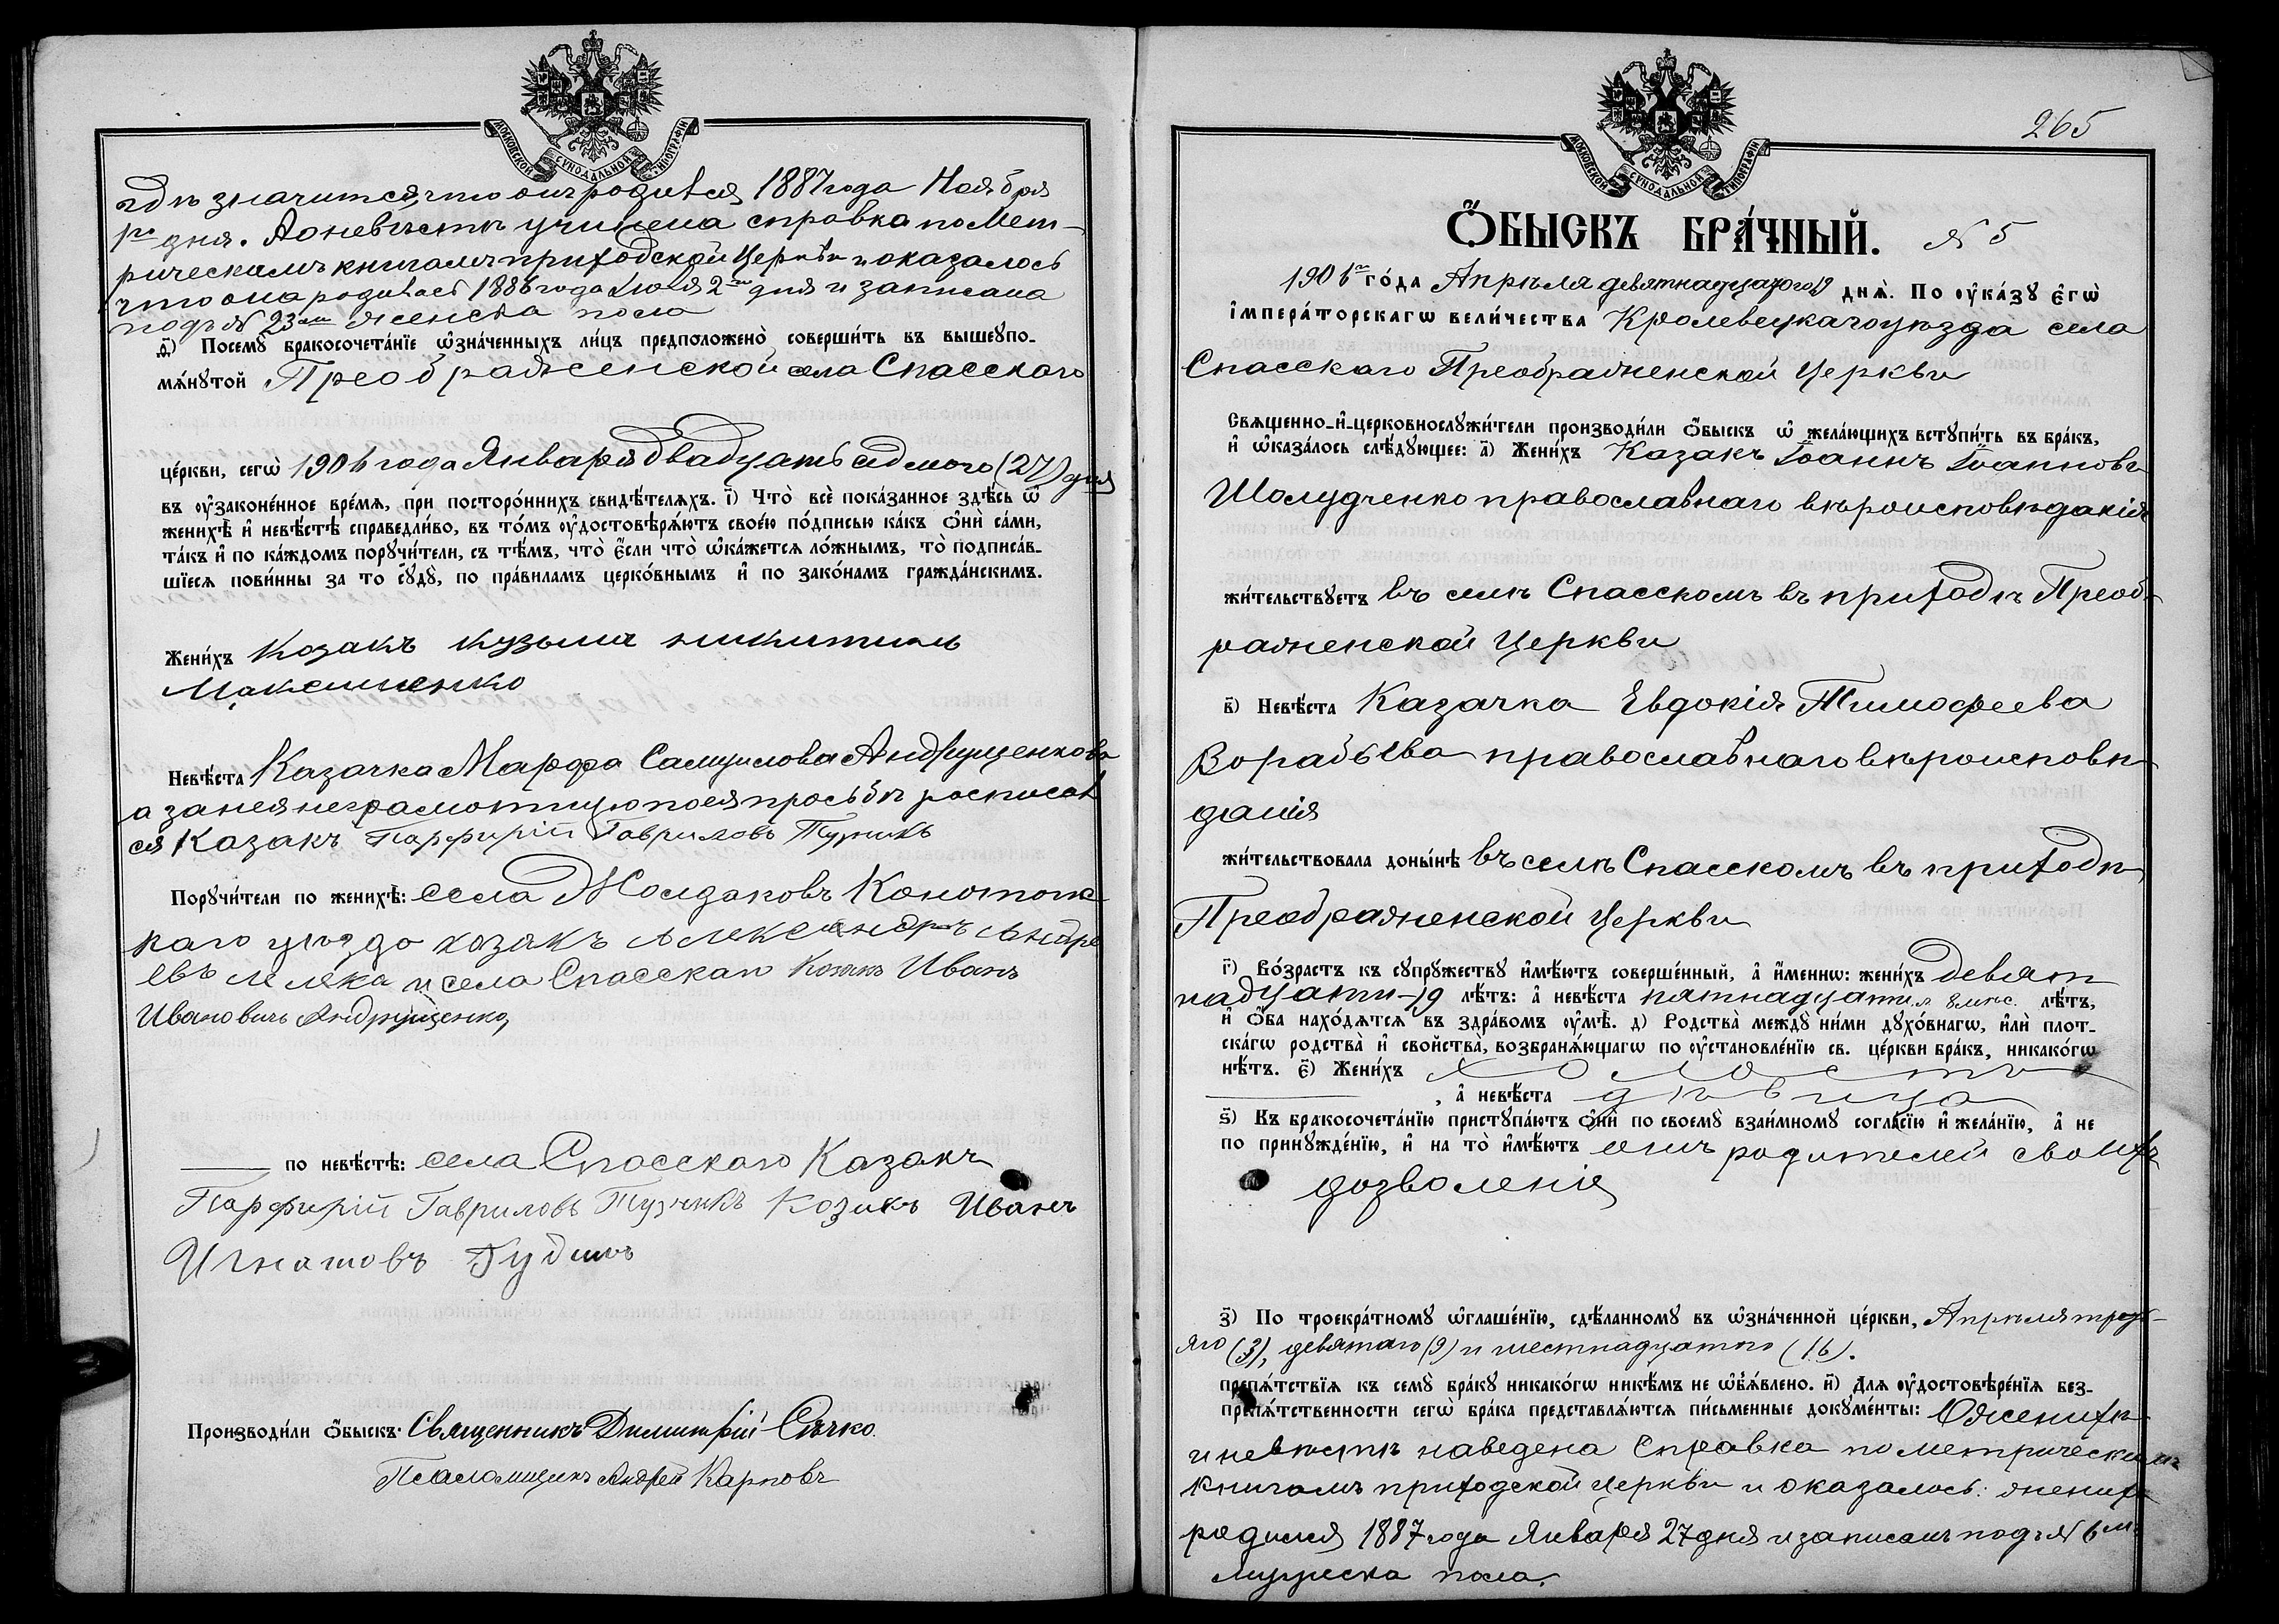 МОСКОВСКОЙ СѴНОДАЛЬНОЙ ТИПОГРАФІИ
гдѣ значится, что онъ родился 1887 года Ноября
1го дня. А о невѣстѣ учинена справка по Мет-
рическимъ книгамъ приходской Церкви и оказалось
что она родилась 1886 года Іюля 2го дня и записана
подъ № 23мъ женска пола
ѳ҃) Посемꙋ бракосочета́нїе ѡ҆зна́ченныхъ ли́цъ предположено̀ соверши́ть въ вышеꙋпо-
мѧ́нꙋтой Преображенской села Спасскаго
це́ркви, сегѡ̀ 1906 года Января двадцать седмого (27) дня
въ ᲂу҆законе́нное вре́мѧ, при посторо́ннихъ свидѣ́телѧхъ. і҃) Что̀ всѐ пока́занное здѣ́сь ѡ҆
женихѣ̀ и҆ невѣ́стѣ справедли́во, въ то́мъ ᲂу҆достовѣрѧ́ютъ свое́ю по́дписью ка́къ ѻ҆нѝ са́ми,
та́къ и҆ по ка́ждомъ порꙋчи́тели, съ тѣ́мъ, что̀ є҆́сли что̀ ѡ҆ка́жетсѧ ло́жнымъ, то̀ подписа́в-
шїесѧ пови́нны за то сꙋдꙋ̀, по пра́виламъ церко́внымъ и҆ по зако́намъ гражда́нскимъ.
Жени́хъ Козакъ Кузьма Никитинъ
Максименко
Невѣ́ста Казачка Марфа Самуилова Андрущенкова
а за нея неграмотную по ея просьбѣ росписал
ся Казакъ Парфирій Гавриловъ Тупикъ
Порꙋчи́тели по женихѣ̀: села Жолдаковъ Конотопс-
каго уезда козакъ Александръ Андре
евъ Леляка и села Спасскаго Козакъ Иванъ
Ивановичъ Андрущенко,
по невѣ́стѣ: села Спасскаго Казакъ
Парфирій Гавриловъ Тупикъ Козакъ Иванъ
Игнатовъ Кудинъ
Производи́ли ѻ҆́быскъ: Священникъ Димитрій Сѣчко.
Псаломщикъ Андрей Карповъ
МОСКОВСКОЙ СѴНОДАЛЬНОЙ ТИПОГРАФІИ
265
Ѻ҆́БЫСКЪ БРА́ЧНЫЙ. № 5
1906го го́да Апрѣля девятнадцатого 19 днѧ̀. По ᲂу҆ка́зꙋ є҆гѡ̀
і҆мпера́торскагѡ вели́чества Кролевецкаго уѣзда села
Спасскаго Преображенской Церкви
Свѧщенно-и҆-церковнослꙋжи́тели производи́ли ѻ҆́быскъ ѡ҆ жела́ющихъ встꙋпи́ть въ бра́къ,
и҆ ѡ҆каза́лось слѣ́дꙋющее: а҃) Жени́хъ Казакъ Іоаннъ Іоанновъ
Шолудченко православнаго вѣроисповѣданія
жи́тельствꙋетъ въ селѣ Спасскомъ въ приходѣ Преоб-
раженской Церкви
в҃) Невѣ́ста Казачка Евдокія Тимофеева
Ворабьева православнаго вѣроисповѣ-
данія
жи́тельствовала доны́нѣ въ селѣ Спасскомъ въ приходѣ
Преображенской Церкви
г҃) Во́зрастъ къ сꙋпрꙋ́жествꙋ и҆мѣ́ютъ соверше́нный, а҆ и҆́меннѡ: жени́хъ девят
надцати-19 лѣ́тъ: а҆ невѣ́ста пятнадцати л 8 мѣс. лѣ́тъ,
и҆ ѻ҆́ба нахо́дѧтсѧ въ здра́вомъ ᲂу҆мѣ̀. д҃) Родства̀ междꙋ̀ ни́ми дꙋхо́внагѡ, и҆лѝ плот-
ска́гѡ родства̀ и҆ сво́йства, возбранѧ́ющагѡ по ᲂу҆становле́нїю св. це́ркви бра́къ, никако́гѡ
нѣ́тъ. є҃) Жени́хъ холостъ
, а҆ невѣ́ста дѣвица
ѕ҃) Къ бракосочета́нїю пристꙋпа́ютъ ѻ҆нѝ по своемꙋ̀ взаи́мномꙋ согла́сїю и҆ жела́нїю, а҆ не
по принꙋжде́нїю, и҆ на то̀ и҆мѣ́ютъ отъ родителей своихъ
дозволеніе
з҃) По троекра́тномꙋ ѡ҆глаше́нїю, сдѣ́ланномꙋ въ ѡ҆зна́ченной це́ркви, Апрѣля треть-
яго (3), девятаго (9) и шестнадцатого (16).
препѧ́тствїѧ къ семꙋ̀ бра́кꙋ никако́гѡ никѣ́мъ не ѡ҆б̾ѧ́влено. и҃) Длѧ ᲂу҆достовѣре́нїѧ без-
препѧ́тственности сегѡ̀ бра́ка представлѧ́ютсѧ пи́сьменные докꙋме́нты: О женихѣ
и невѣстѣ наведена Справка по метрическимъ
Книгамъ приходской церкви и оказалось: женихъ
родился 1887 года Января 27 дня и записанъ подъ № 6мъ
мужеска пола.